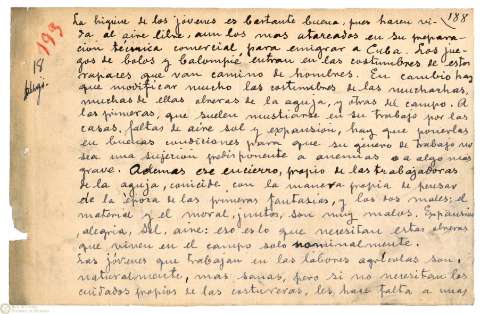 188
193
18
La higiene de los jóvenes es bastante buena, pues hacen vi-
da al aire libre, aun los mas atareados en su prepara-
ción técnica comercial, para emigrar a Cuba. Los jue-
gos de bolos y balompie, entran en las costumbres de estos
rapaces que van camino de hombres. En cambio hay
que modificar mucho las costumbres de las muchachas,
muchas de ellas obreras de la aguja, y otras del campo. A
las primeras, que suelen mustiarse en su trabajo por las
casas, faltas de aire sol y expansión, hay que ponerlas
en buenas condiciones para que su genero de trabajo no
sea una sujecion predisponente a anemias o a algo mas
grave. Ademas ese encierro, propio de las trabajadoras
de la aguja, coincide, con la manera propia de pensar
de la época de las primeras fantasías, y los dos males; el
material y el moral, juntos, son muy malos. Expansion
, alegria, sol, aire: eso es lo que necesitan estas obreras
que viven en el campo solo nominalmente.
Las jóvenes que trabajan en las labores agricolas son,
naturalmente, mas sanas, pero si no necesitan los
cuidados propios de las costureras, les hace falta a unas